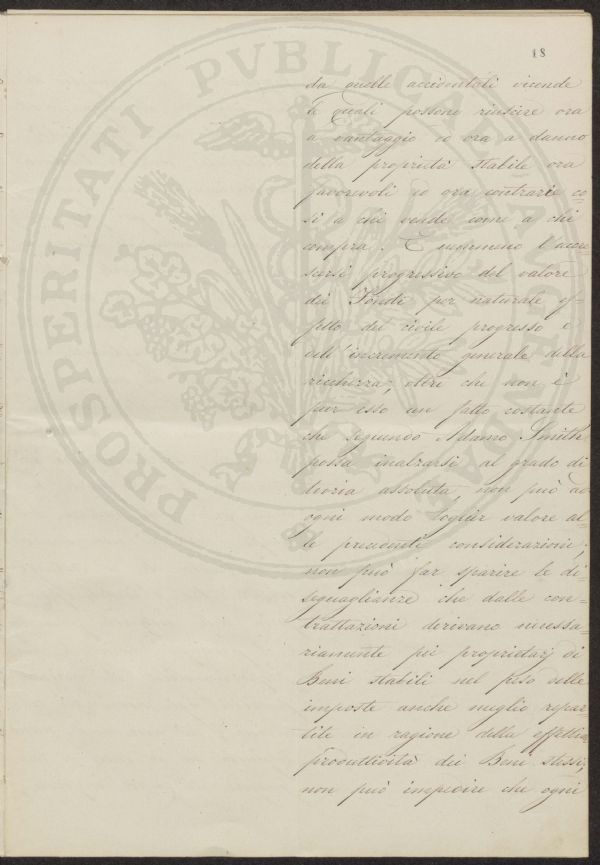 18
da quelle accidentali vicende
le quali possono riuscire ora
a vantaggio ed ora a danno
della proprietà stabile ora
favorevoli ed ora contrarie co=
sì a chi vende come a chi
compra. E nemmeno l'accre=
scersi progressivo del valore
dei Fondi per naturale ef=
fetto del civile progresso e
dell'incremento generale della
ricchezza, oltre che non è
pur esso un fatto costante,
che seguendo Adamo Smith
possa inalzarsi al grado di
teoria assoluta, non può ad
ogni modo toglier valore al=
le precedenti considerazioni;
non può far sparire le di=
seguaglianze che dalle con=
trattazioni derivano necessa=
riamente pei proprietarj di
Beni stabili nel peso delle
imposte anche meglio repar=
tite in ragione della effettiva
produttività dei Beni stessi;
non può impedire che ogni
PROSPERITATI PVBLICAE